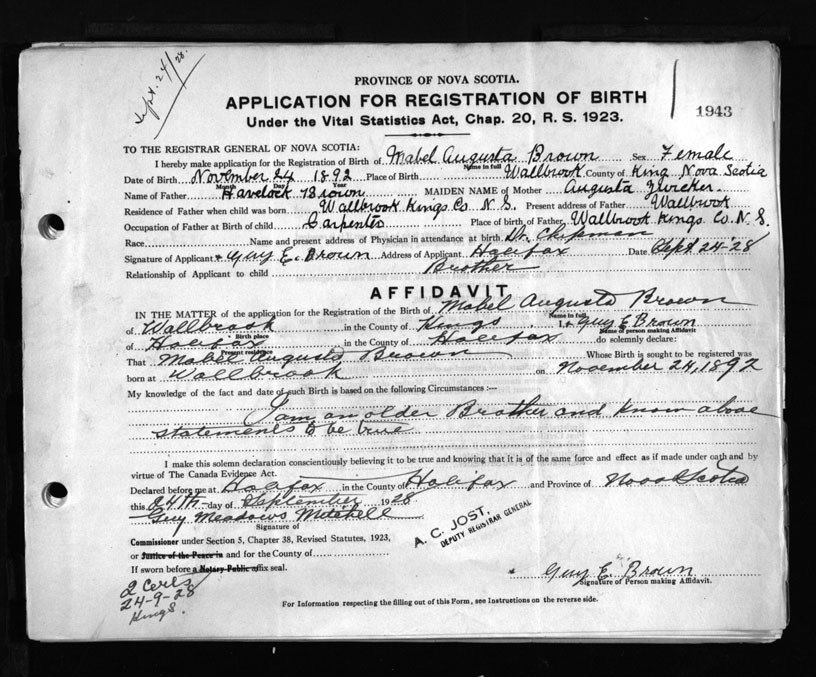 Sept. 24/28.
PROVINCE OF NOVA SCOTIA.
APPLICATION FOR REGISTRATION OF BIRTH
1943
Under the Vital Statistics Act, Chap. 20, R. S. 1923.
TO THE REGISTRAR GENERAL OF NOVA SCOTIA:
I hereby make application for the Registration of Birth of Mabel Augusta Brown Sex Female
Name in full
Date of Birth November 24 1892 Place of Birth Wallbrook County of King Nova Scotia
Month Day Year
Name of Father Havelock Brown MAIDEN NAME of Mother Augusta
Residence of Father when child was born Wallbrook Kings Co. N. S. Present address of Father Wallbrook
Occupation of Father at Birth of child Carpenter Place of birth of Father Wallbrook Kings Co. N. S.
Race Name and present address of Physician in attendance at birth Dr. Chipman
Signature of Applicant Guy E. Brown Address of Applicant Halifax Date Sept 24-28
Relationship of Applicant to child Brother
AFFIDAVIT
IN THE MATTER of the application for the Registration of the Birth of Mabel Augusta Brown
Name in full
of Wallbrook in the County of Kings I, Guy E Brown
Birth place Name of person making Affidavit
of Halifax in the County of Halifax do solemnly declare:
Present residence
That Mabel Augusta Brown Whose Birth is sought to be registered was
born at Wallbrook on November 24, 1892
My knowledge of the fact and date of such Birth is based on the following Circumstances :—
I am an older Brother and know above
statements to be true
I make this solemn declaration conscientiously believing it to be true and knowing that it is of the same force and effect as if made under oath and by
virtue of The Canada Evidence Act.
Declared before me at Halifax in the County of Halifax and Province of Nova Scotia
this 24th day of September 1928
Guy Meadows Mitchell
Signature of
A. C. JOST.
DEPUTY REGISTRAR GENERAL
Commissioner under Section 5, Chapter 38, Revised Statutes, 1923,
or Justice of the Peace in and for the County of
If sworn before a Notary Public affix seal.
Guy E. Brown
Signature of Person making Affidavit.
2 Certs
24-9-28
Kings.
For Information respecting the filling out of this Form, see Instructions on the reverse side.